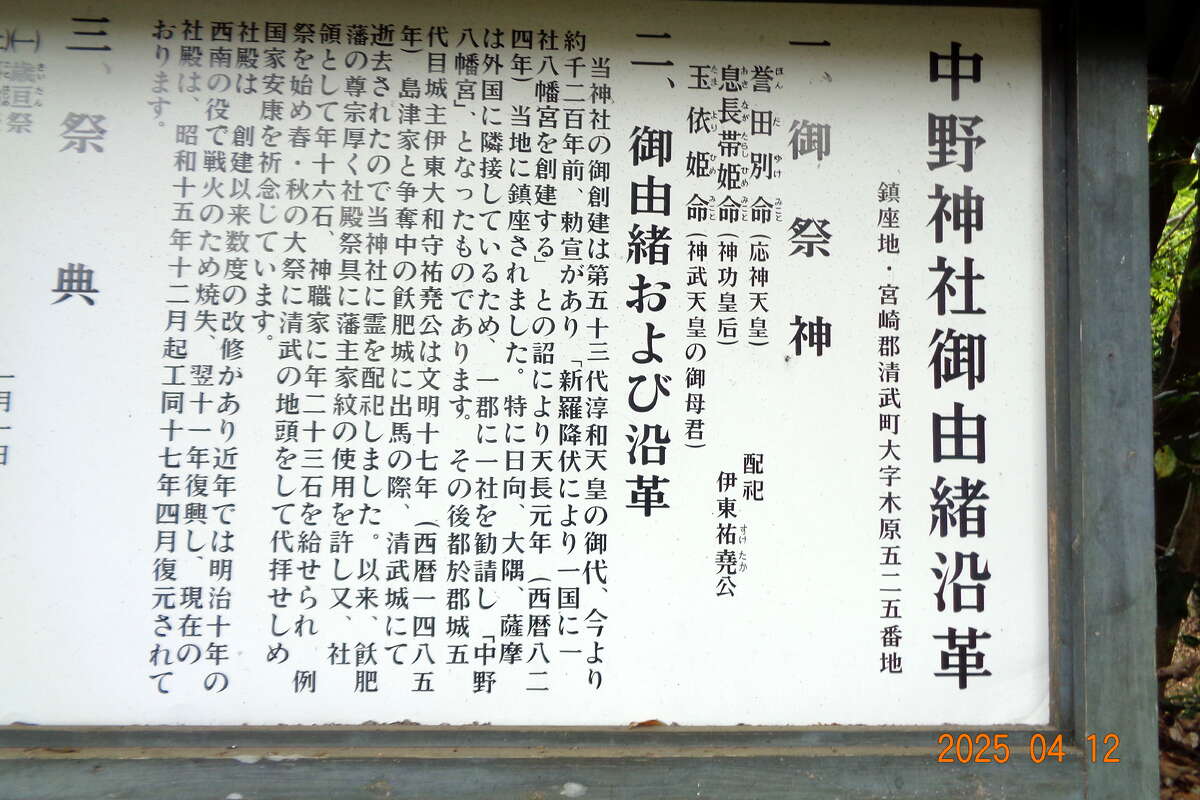 中野神社御由緒沿革
鎮座地・宮崎郡清武町大字木原五二五番地
一、御祭神
誉田別命(応神天皇)
ほんだゆけみこと
息長帯姫命(神功皇后)
おきながたらしひめみこと
玉依姫命(神武天皇の御母君)
たまよりひめみこと
配祀
伊東祐堯公
すけたか
二、御由緒および沿革
当神社の御創建は第五十三代淳和天皇の御代、今より
約千二百年前、勅宣があり「新羅降伏により一国に一
社八幡宮を創建する」との詔により天長元年(西暦八二
四年)当地に鎮座されました。特に日向、大隅、薩摩
は外国に隣接しているため、一郡に一社を勧請し「中野
八幡宮」、となったものであります。その後都於郡城五
代目城主伊東大和守祐堯公は文明十七年(西暦一四八五
年)島津家と争奪中の飫肥城に出馬の際、清武城にて
逝去されたので当神社に霊を配祀しました。以来、飫肥
藩の尊宗厚く社殿祭具に藩主家紋の使用を許し又、社
領として年十六石、神職家に年二十三石を給せられ 例
祭を始め春・秋の大祭に清武の地頭をして代拝せしめ
国家安康を祈念じています。
社殿は、創建以来数度の改修があり近年では明治十年の
西南の役で戦火のため焼失、翌十一年復興し、現在の
社殿は、昭和十五年十二月起工同十七年四月復元されて
おります。
三、祭典
㈠歳旦祭
さいたん
一月一日
2025 04 12